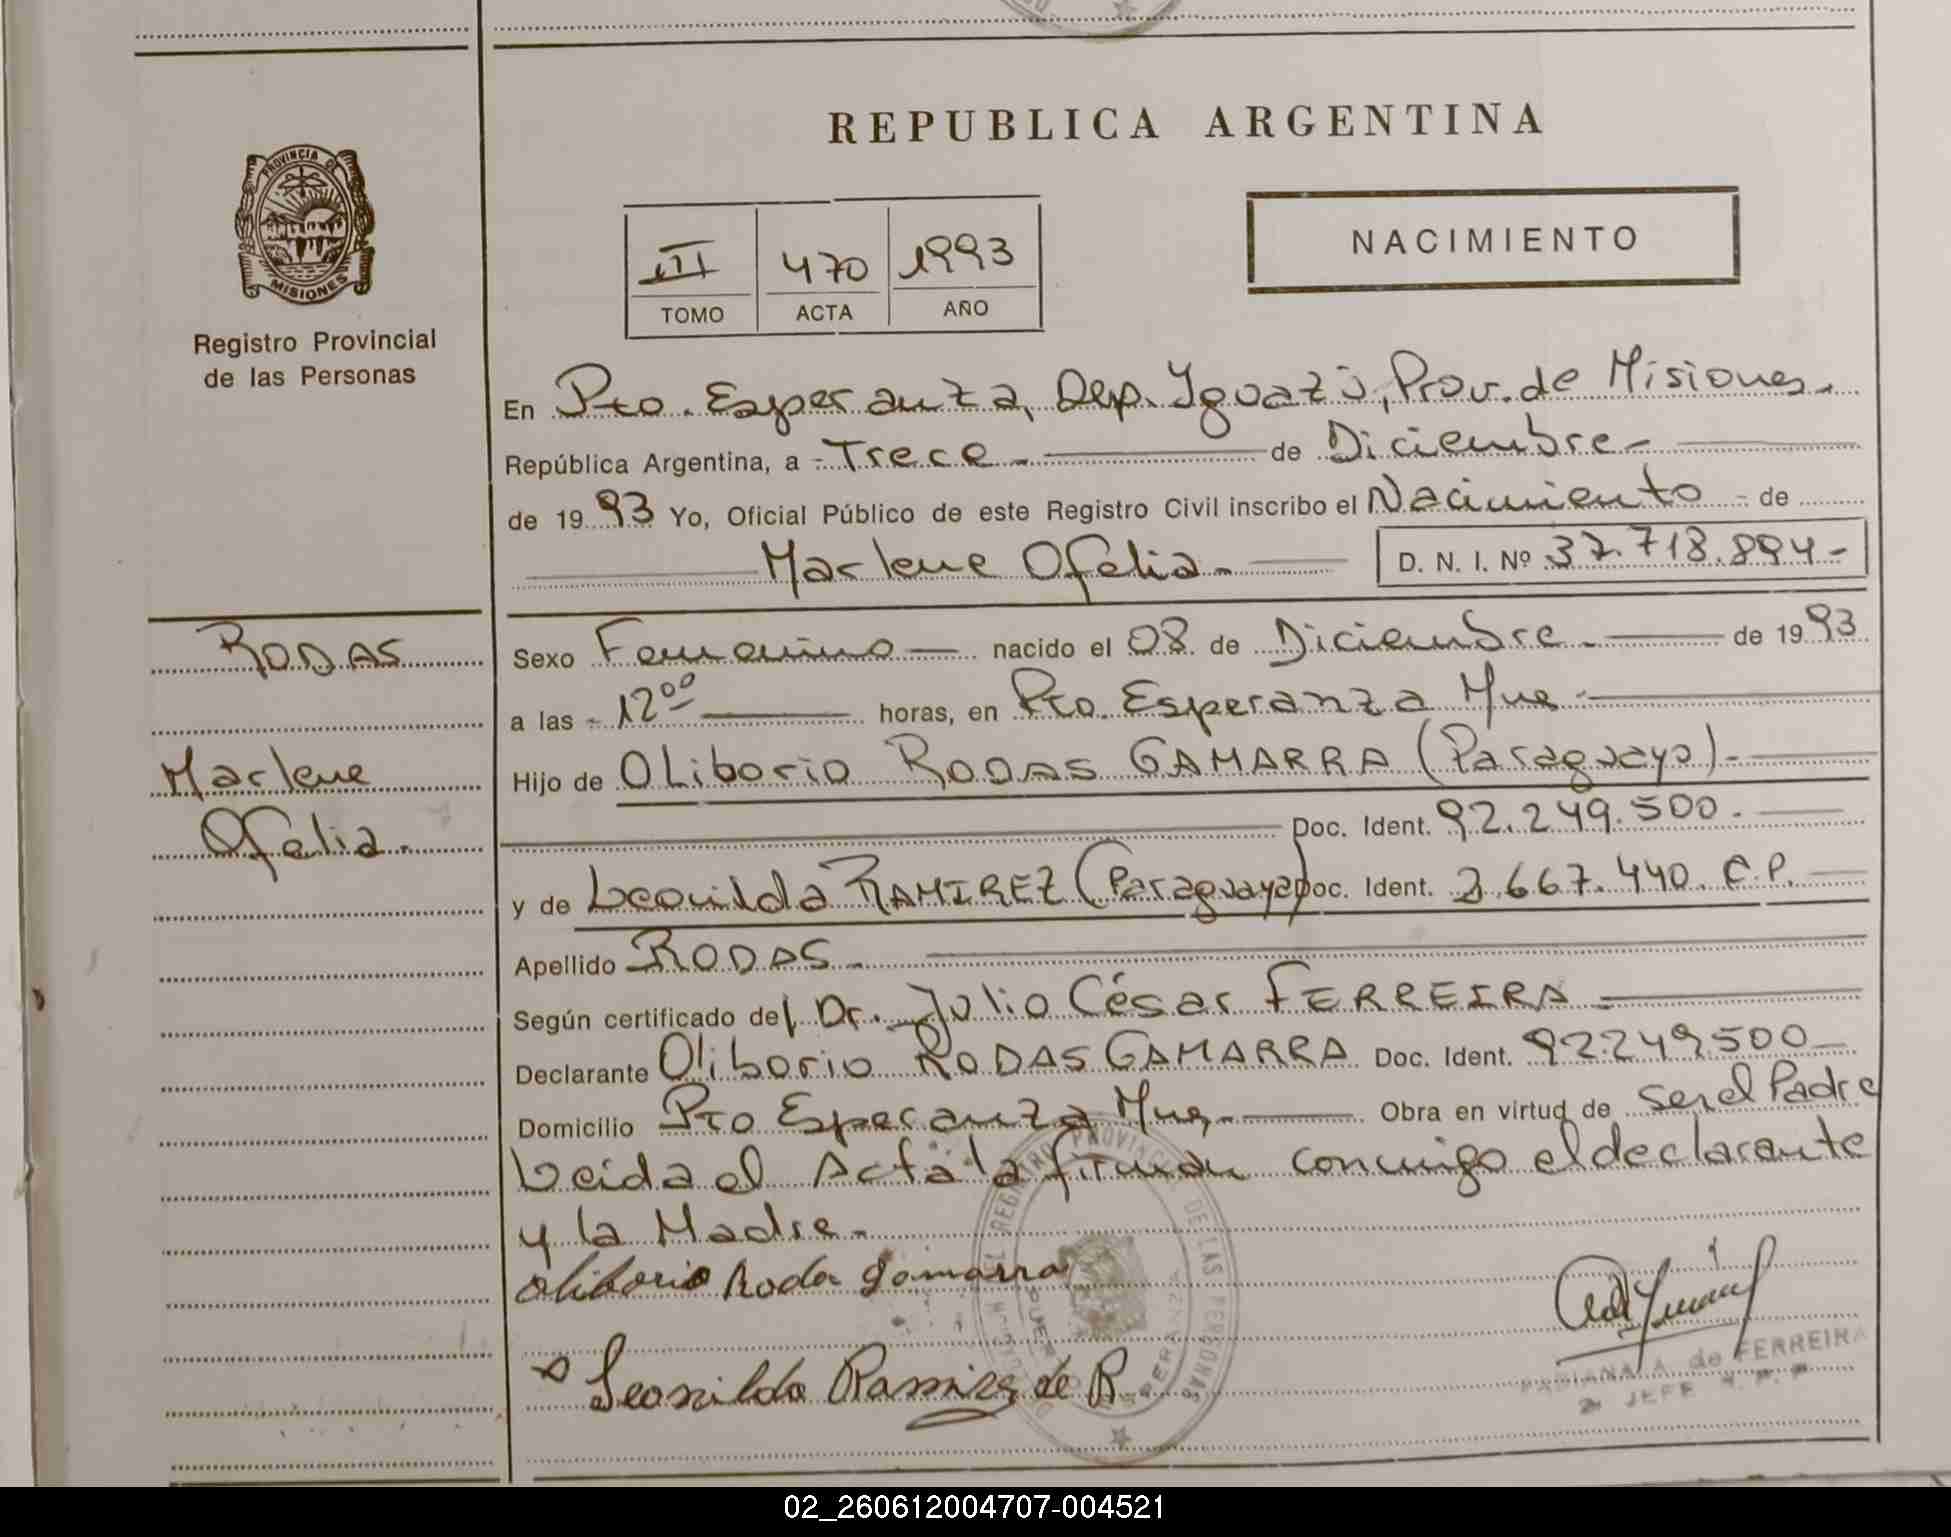 REPUBLICA ARGENTINA
PROVINCIA DE
MISIONES
Registro Provincial
de las Personas
III 470 1993
TOMO ACTA AÑO
NACIMIENTO
En Pto. Esperanza, Dep. Iguazú, Prov. de Misiones.
República Argentina, a - Trece - de Diciembre -
de 1993 Yo, Oficial Público de este Registro Civil inscribo el Nacimiento - de
Marlene Ofelia - D. N. I. Nº 37.718.894-
RODAS
Marlene
Ofelia.
Sexo Femenino nacido el 08 de Diciembre - de 1993
a las - 12⁰⁰ horas, en Pto. Esperanza Mnes -
Hijo de OLiborio RODAS GAMARRA (Paraguayo) -
Doc. Ident. 92.249.500.
y de Leonilda RAMIREZ (Paraguaya) Doc. Ident. 2.667.440. C.P.
Apellido RODAS -
Según certificado del Dr. Julio César FERREIRA
Declarante Oliborio RODAS GAMARRA Doc. Ident. 92.249.500
Domicilio Pto Esperanza Mnes. Obra en virtud de ser el Padre
Leida el Acta la firman conmigo el declarante
y la Madre -
oliborio Roda gamarra
Leonilda Ramirez de R.
REGISTRO PROVINCIAL DE LAS PERSONAS
ESPERANZA
FABIANA A. de FERREIRA
JEFE
02_260612004707-004521